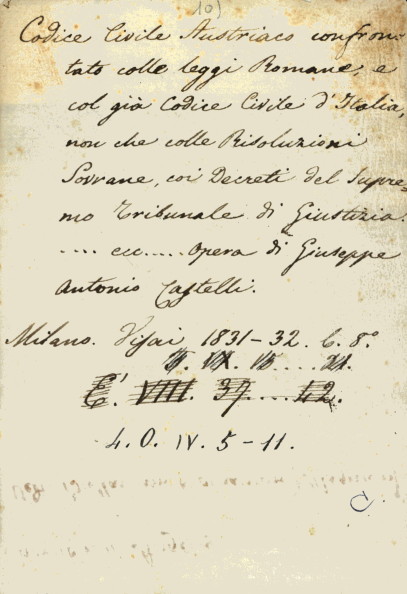 10)
Codice Civile Austriaco confron-
tato colle leggi Romane, e
col già Codice Civile d'Italia,
non che colle Risoluzioni
Sovrane, coi Decreti del Supre-
mo Tribunale di Giustizia.
.... ecc..... opera di Giuseppe
Antonio Castelli.
Milano. Visai 1831-32. 6. 8.°
E'. VIII. 37....42.
4. O. IV. 5-11.
C